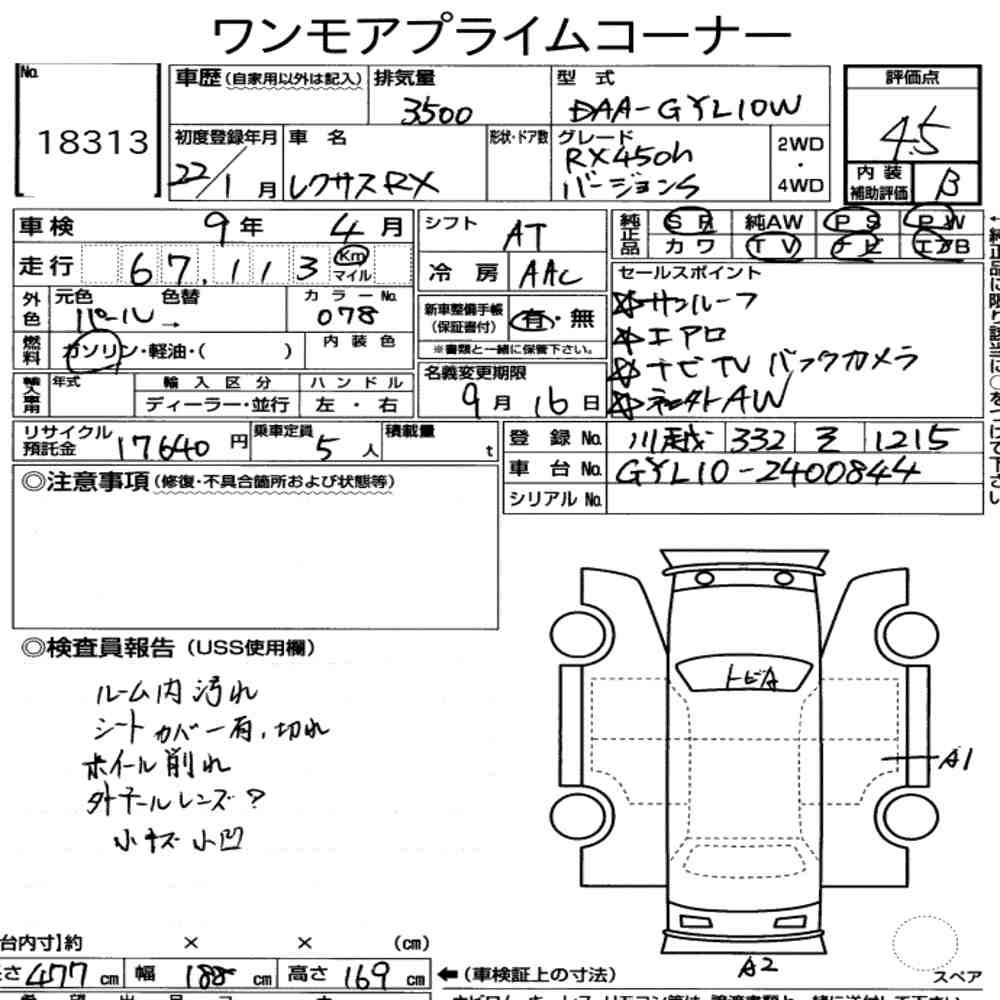 ワンモアプライムコーナー
No. 18313
車歴(自家用以外は記入) 排気量 3500 型式 DAA-GYL10W
評価点 4.5
初度登録年月 22/1月 車名 レクサスRX 形状・ドア数 グレード RX450h バージョンS 2WD・4WD
内装補助評価 B
車検 9年 4月
走行 67,113 Km マイル
外色 元色 パール 色替 → カラーNo. 078
燃料 ガソリン・軽油・( ) 内装色
輸入車用 年式 輸入区分 ハンドル
ディーラー・並行 左・右
シフト AT
冷房 AAC
新車整備手帳(保証書付) 有・無
※書類と一緒に保管下さい。
名義変更期限
9月16日
純正品 SR 純AW PS PW
カワ TV ナビ エアB
セールスポイント
☆サンルーフ
☆エアロ
☆ナビTV バックカメラ
AW
リサイクル預託金 17640円 乗車定員 5人 積載量 t
登録No. 川越 332 1215
車台No. GYL10-2400844
シリアルNo.
◎注意事項(修復・不具合箇所および状態等)
◎検査員報告(USS使用欄)
ルーム内汚れ
シートカバー有、切れ
ホイール削れ
外テールレンズ?
小キズ小凹
トビA
A1
A2
台内寸】約 × × (cm)
さ 477 cm 幅 188 cm 高さ 169 cm ←(車検証上の寸法)
スペア